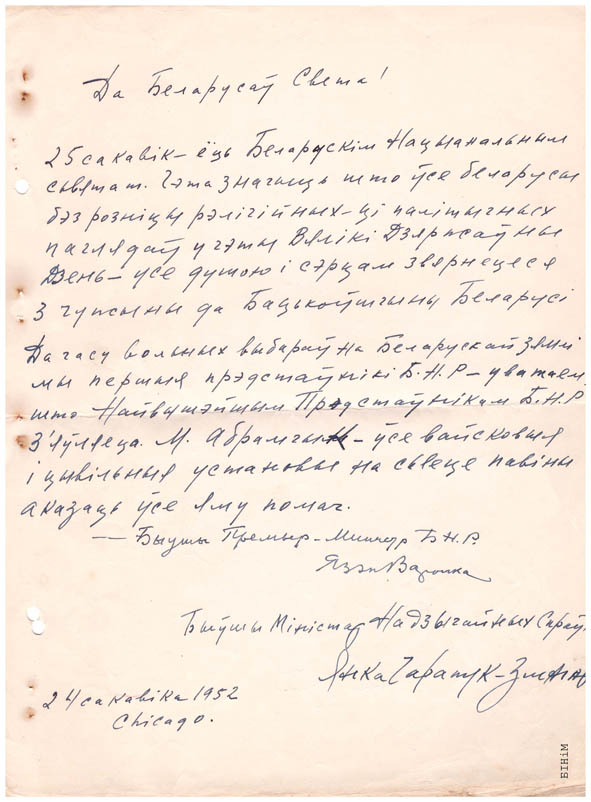 Да Беларусаў Света!
25 сакавік – ёць Беларускім Нацыанальным
сьвятам. Гэта значыць што ўсе беларусы
бэз розніцы рэлігійных – ці палітычных
паглядаў у гэты Вялікі Дзяржаўны
Дзень – усе душою і сэрцам звярнецеся
з чужыны да Бацькоўшчыны Беларусі
Да часу вольных выбараў на Беларускай Зямлі
мы першыя прэдстаўнікі Б.Н.Р – уважаем
што Найвышэйшым Прэдстаўнікам Б.Н.Р
З'яўляеца М. Абрамчык – ўсе вайсковыя
і цывільныя установы на сьвеце павіны
аказаць ўсе яму помач.
— Быушы Премьр-Министр Б.Н.Р.
Язэп Варонка
Быўшы Міністар Надзвычайных Спраў.
Янка Чарапук-Змагар
24 сакавіка 1952
Chicago.
БІНіМ